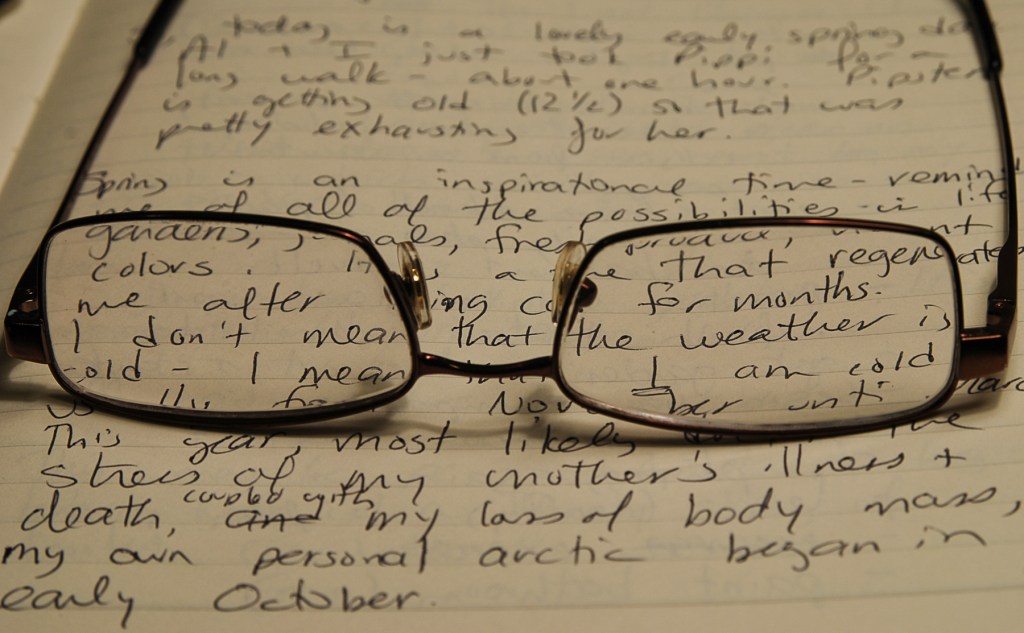 today is a lovely early spring da
Al + I just took Pippi for a
long walk - about one hour. Pipster
is getting old (12 1/2) so that was
pretty exhausting for her.
Spring is an inspirational time - remin
me of all of the possibilities in life
gardens, als, fres
colors. a that regenerates
me after ing co for months.
I don't mean that the weather is
old - I mean I am cold
Nov ber unti
This year, most likely
stress of my mother's illness +
death, coupled with and my loss of body mass,
my own personal arctic began in
early October.